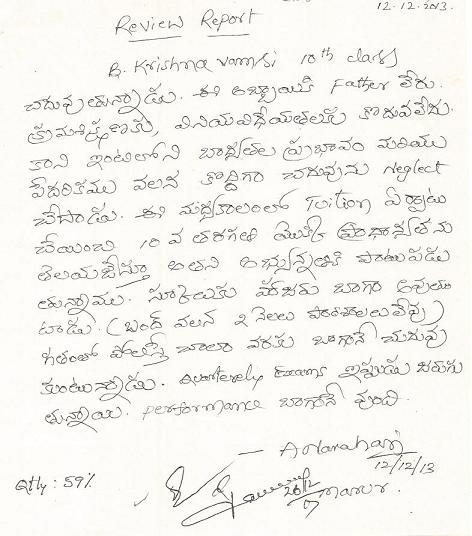 12.12.2013.
Review Report
B. Krishna vamsi 10th class
చదువుతున్నాడు. ఈ అబ్బాయికి Father లేరు.
క్రమశిక్షణకు, వినయవిధేయతలకు కొదువలేదు.
కాని ఇంటిలోని బాధ్యతల ప్రభావం మరియు
పేదరికము వలన కొద్దిగా చదువును Neglect
చేసాడు. ఈ మధ్యకాలంలో Tuition ఏర్పాటు
చేయించి 10 వ తరగతి యొక్క ప్రాధాన్యతను
తెలియజేస్తూ అతని అభ్యున్నతికి పాటుపడు
తున్నాము. స్కూలుకు హాజరు బాగా అవుతు
టాడు. (బంద్ వలన 2 నెలలు పాఠశాలలులేవు)
గతంతో పోలిస్తే చాలా వరకు బాగానే చదువు
కుంటున్నాడు. Quarterely Exams ఇప్పుడు జరుగు
తున్నాయి. Performance బాగానే వుంది.
A Narahari
12/12/13
Qtly : 59%
20/12